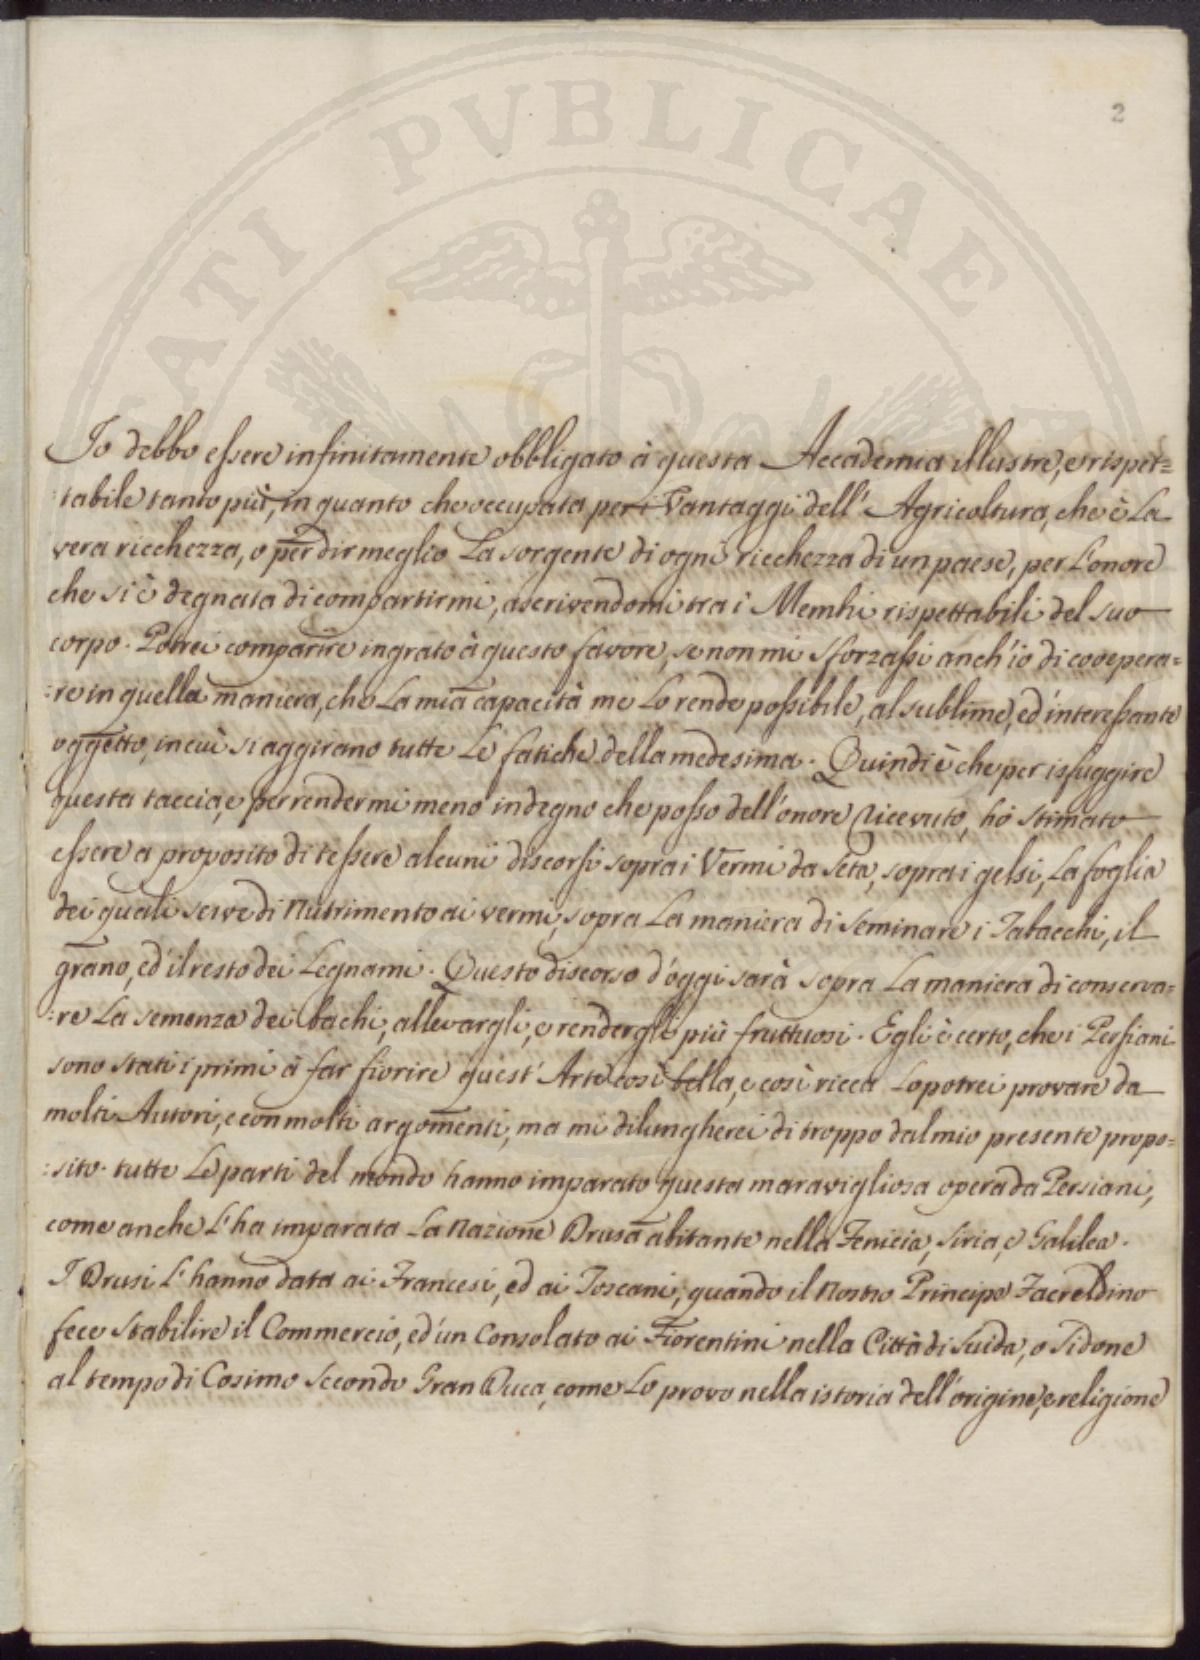 ATI PVBLICAE
2
Io debbo essere infinitamente obbligato à questa Accademia illustre, e rispet=
:tabile tanto più, in quanto che occupata per i Vantaggi dell' Agricoltura, che è La
vera ricchezza, o per dir meglio La sorgente di ogni ricchezza di un paese, per L'onore
che si è degnata di compartirmi, ascrivendomi tra i Membri rispettabili del suo
corpo. Potrei comparire ingrato à questo favore, se non mi sforzassi anch'io di coopera=
:re in quella maniera, che La mia capacità me Lo rende possibile, al sublime, ed interessante
oggetto, in cui si aggirano tutte Le fatiche della medesima. Quindi è che per isfuggire
questa taccia, e per rendermi meno indegno che posso dell'onore ricevuto, hò stimato
essere a proposito di tessere alcuni discorsi sopra i Vermi da Seta, sopra i gelsi, La foglia
dei quali serve di Nutrimento ai vermi, sopra La maniera di seminare i Tabacchi, il
grano, ed il resto dei Legnami. Questo discorso d'oggi sarà sopra La maniera di conserva=
:re La semenza dei bachi, allevargli, e rendergli più fruttuosi. Egli è certo, che i Persiani
sono stati i primi à far fiorire quest' Arte così bella, e così ricca Lo potrei provare da
molti Autori, e con molti argomenti, ma mi dilungherei di troppo dal mio presente propo=
:sito. tutte Le parti del mondo hanno imparato questa maravigliosa opera da Persiani,
come anche L'ha imparata La Nazione Drusa abitante nella Fenicia, Siria, e Galilea.
I Drusi L'hanno data ai Francesi, ed ai Toscani, quando il Nostro Principe Facreldino
fece stabilire il Commercio, ed un Consolato ai Fiorentini nella Città di Seida, o Sidone
al tempo di Cosimo Secondo Gran Duca, come Lo provo nella istoria dell'origine, e religione